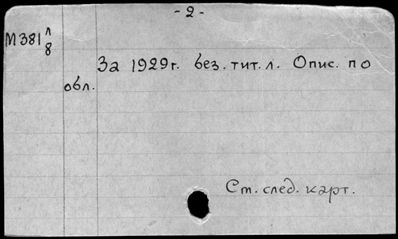 - 2 -
М381 л/8
За 1929 г. без. тит. л. Опис. по
обл.
См. след. карт.